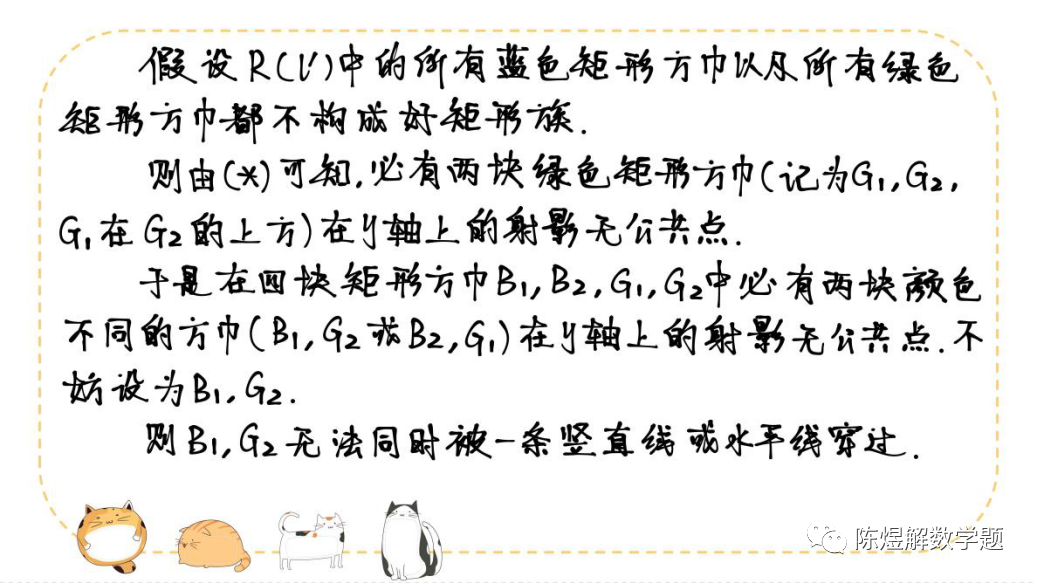 假设R(l')中的所有蓝色矩形方巾以及所有绿色
矩形方巾都不构成好矩形族.
则由(*)可知,必有两块绿色矩形方巾(记为G₁,G₂,
G₁在G₂的上方)在y轴上的射影无公共点.
于是在四块矩形方巾B₁,B₂,G₁,G₂中必有两块颜色
不同的方巾(B₁,G₂或B₂,G₁)在y轴上的射影无公共点.不
妨设为B₁,G₂.
则B₁,G₂无法同时被一条竖直线或水平线穿过.
陈煜解数学题